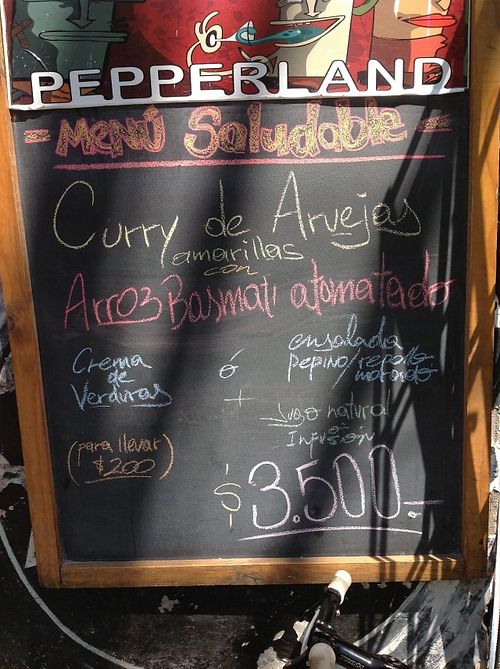 PEPPERLAND
- MENÚ Saludable -
Curry de Arvejas
amarillas
con
Arroz Basmati atomatado
Crema de Verduras
ó
ensalada
pepino/repollo
morado
+
Jugo natural
o
Infusión
(para llevar
$200)
$3.500.-